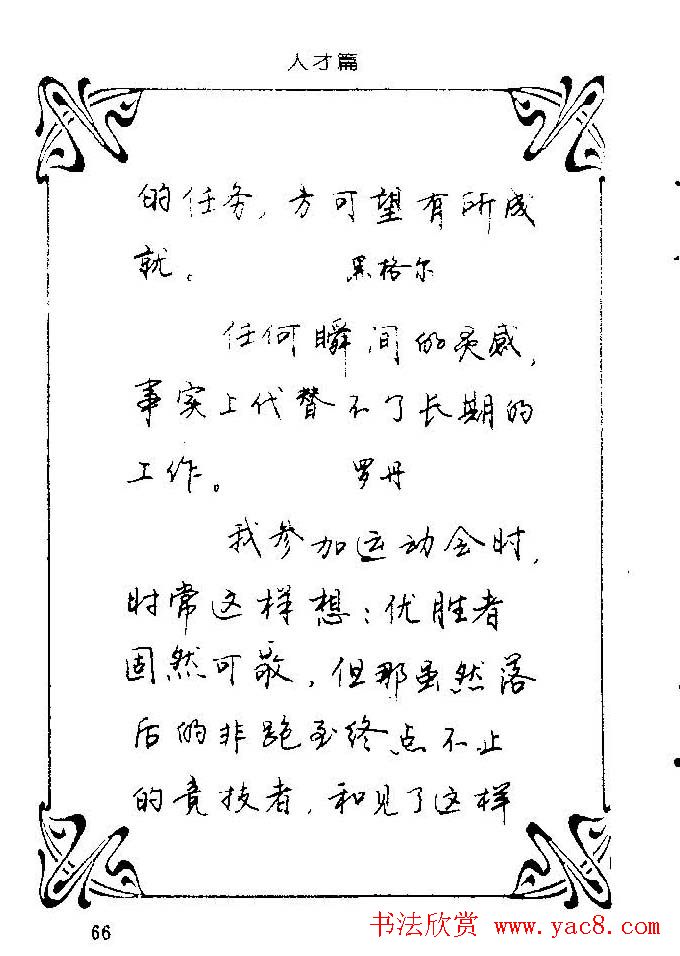 人才篇
的任务，方可望有所成
就。 黑格尔
任何瞬间的灵感，
事实上代替不了长期的
工作。 罗丹
我参加运动会时，
时常这样想：优胜者
固然可敬，但那虽然落
后的非跑至终点不止
的竞技者，和见了这样
66
书法欣赏 www.yac8.com